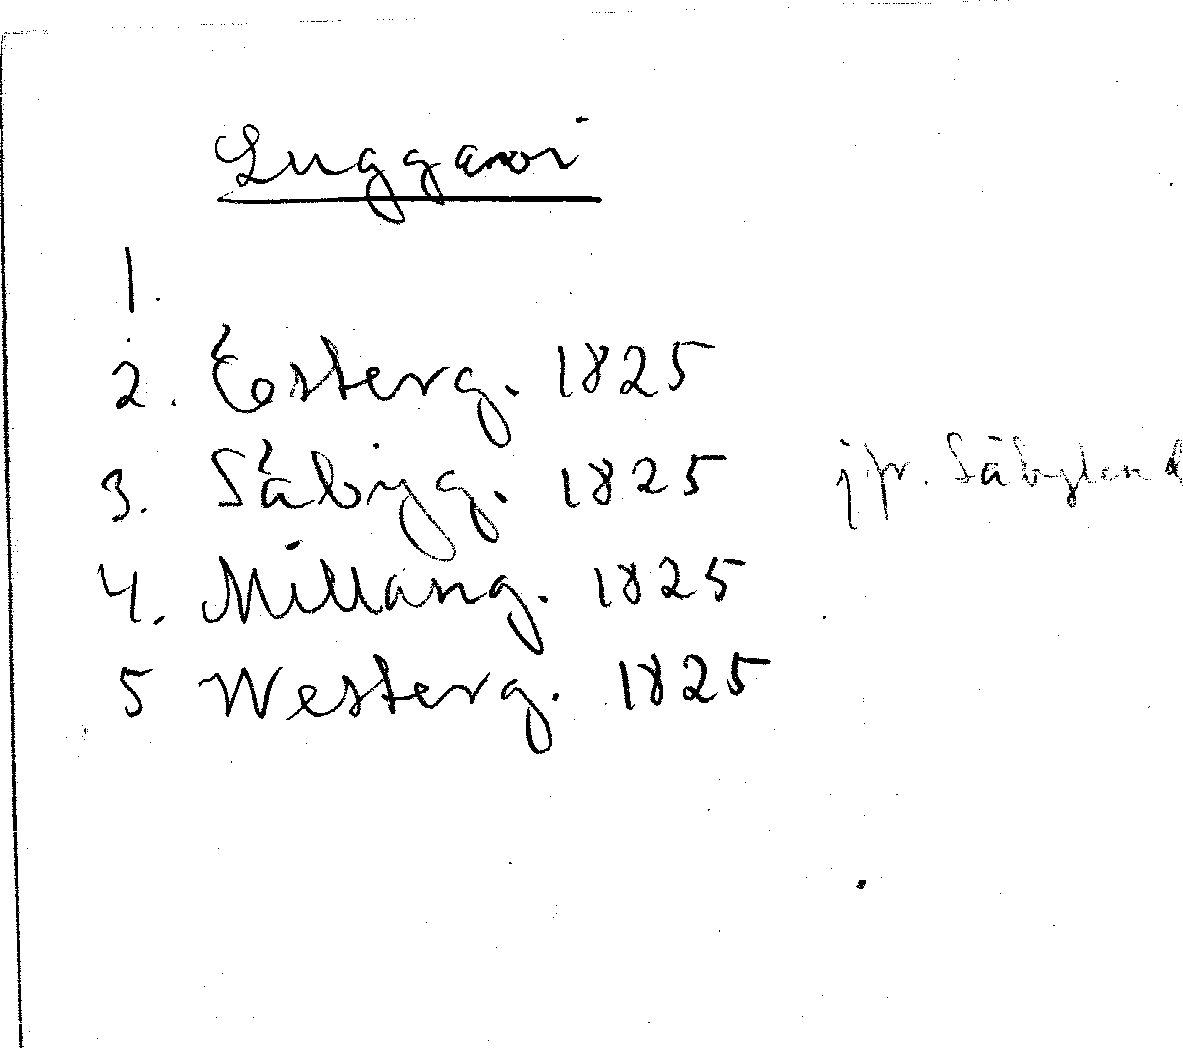 Luggavi
1.
2. Österg. 1825
3. Säbyg. 1825 jfr. Säbylund
4. Millang. 1825
5 Westerg. 1825